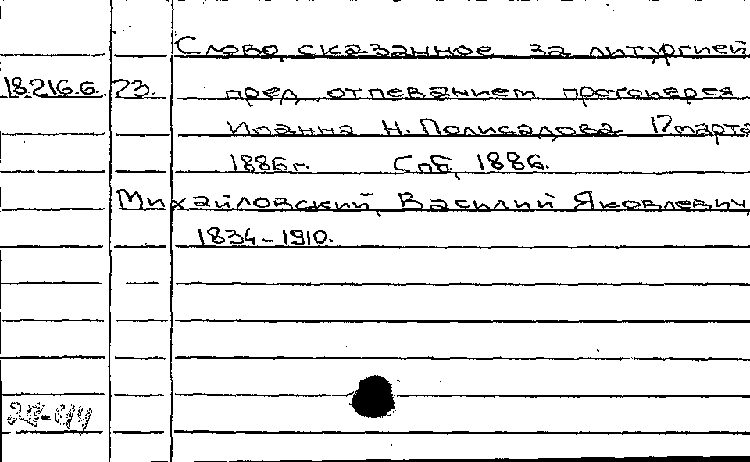 Слово, сказанное за литургией
18.216.6.73. пред отпеванием протоиерея
Иоанна Н. Полисадова 17 марта
1886г. Спб, 1886.
Михайловский, Василий Яковлевич,
1834-1910.